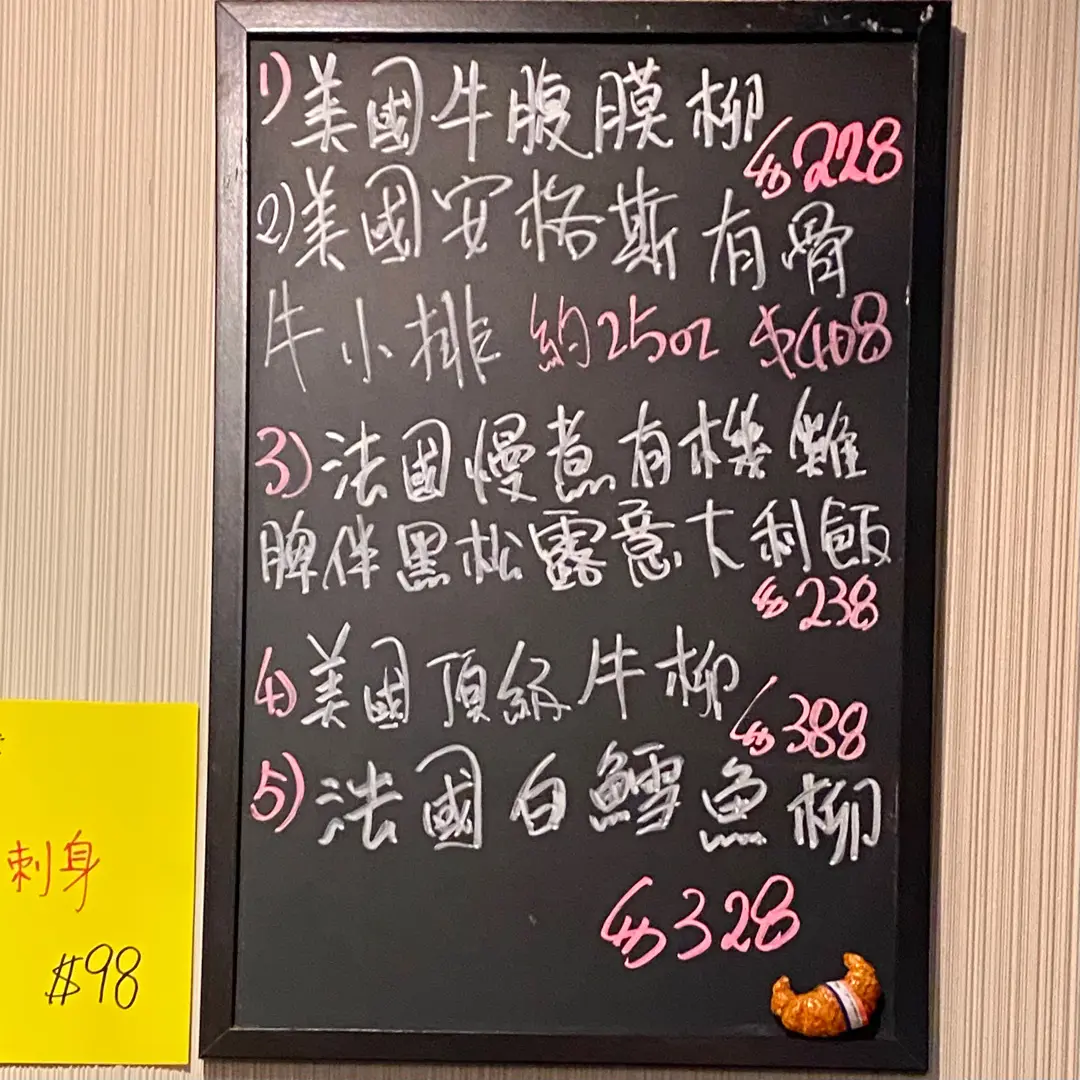 1) 美國牛腹膜柳
$228
2) 美國安格斯有骨
牛小排 約25oz $408
3) 法國慢煮有機雞
脾伴黑松露意大利飯
$238
4) 美國頂級牛柳
$388
5) 法國白鱈魚柳
$328
刺身
$98